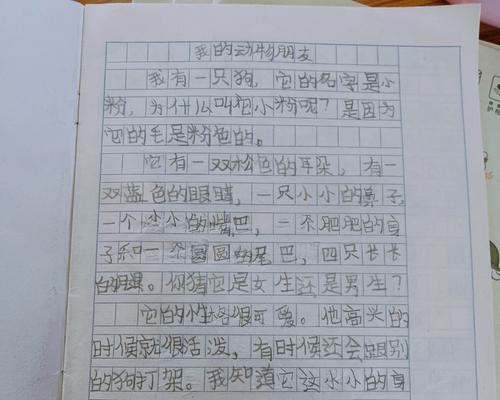 我的动物朋友
我有一只狗,它的名字是小
粉,为什么叫它小粉呢?是因为
它的毛是粉色的。
它有一双松色的耳朵,有一
双蓝色的眼睛,一只小小的鼻子,
一个小小的嘴巴,一个肥肥的身
子和一个圆圆的尾巴,四只长长
的腿。你猜它是女生还是男生?
它的性格很可爱。他高兴的
时候就很活泼,有时候还会跟别
的狗打架。我知道它这小小的身